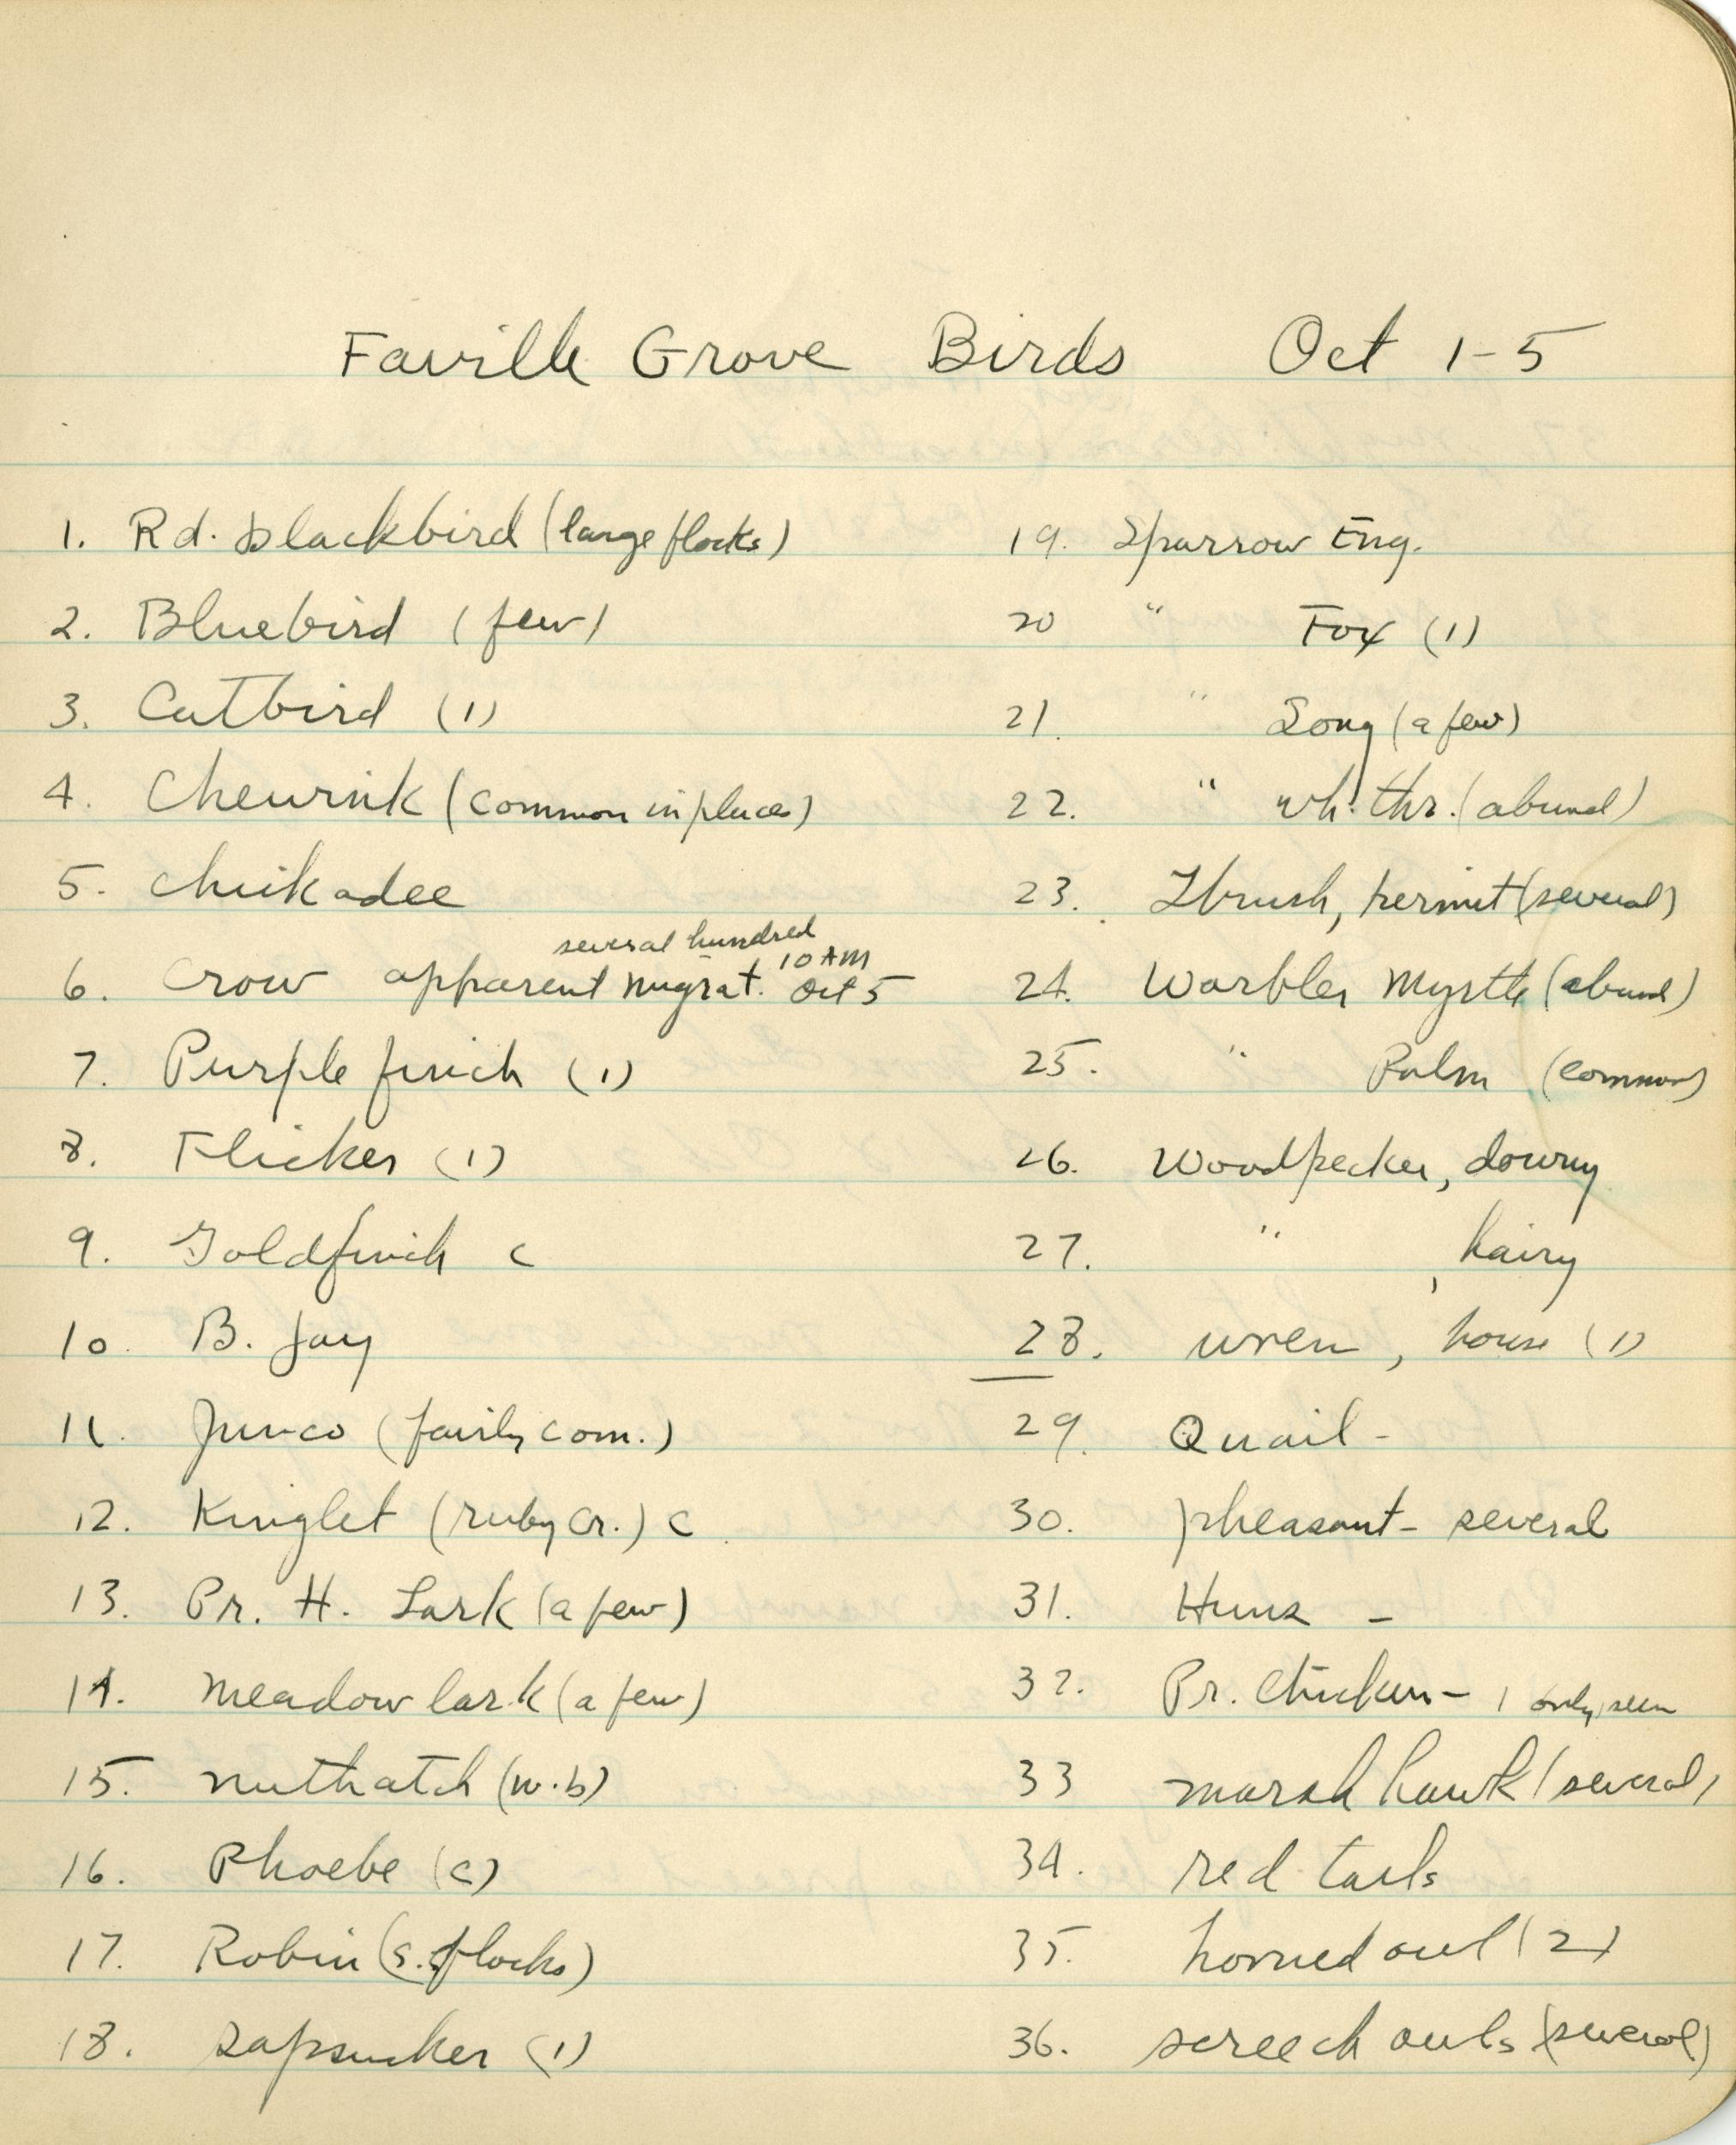 Faville Grove Birds Oct 1-5
1. Rd. blackbird (large flocks)
2. Bluebird (few)
3. Catbird (1)
4. Chewink (common in places)
5. chickadee
several hundred
6. crow apparent migrat. 10 AM Oct 5
7. Purple finch (1)
8. Flicker (1)
9. Goldfinch c
10. B. jay
11. Junco (fairly com.)
12. Kinglet (ruby cr.) c
13. Pr. H. Lark (a few)
14. meadow lark (a few)
15. nuthatch (w.b)
16. Phoebe (c)
17. Robin (s. flocks)
18. sapsucker (1)
19. Sparrow Eng.
20 " Fox (1)
21. " Song (a few)
22. " wh. thr. (abund)
23. Thrush, hermit (several)
24. Warbler Myrtle (abund)
25. " Palm (common)
26. Woodpecker, downy
27. " , hairy
28. wren, house (1)
29. Quail -
30. pheasant - several
31. Huns -
32. Pr. Chicken - 1 only seen
33 marsh hawk (several)
34. red tails
35. horned owl (2)
36. screech owls (several)